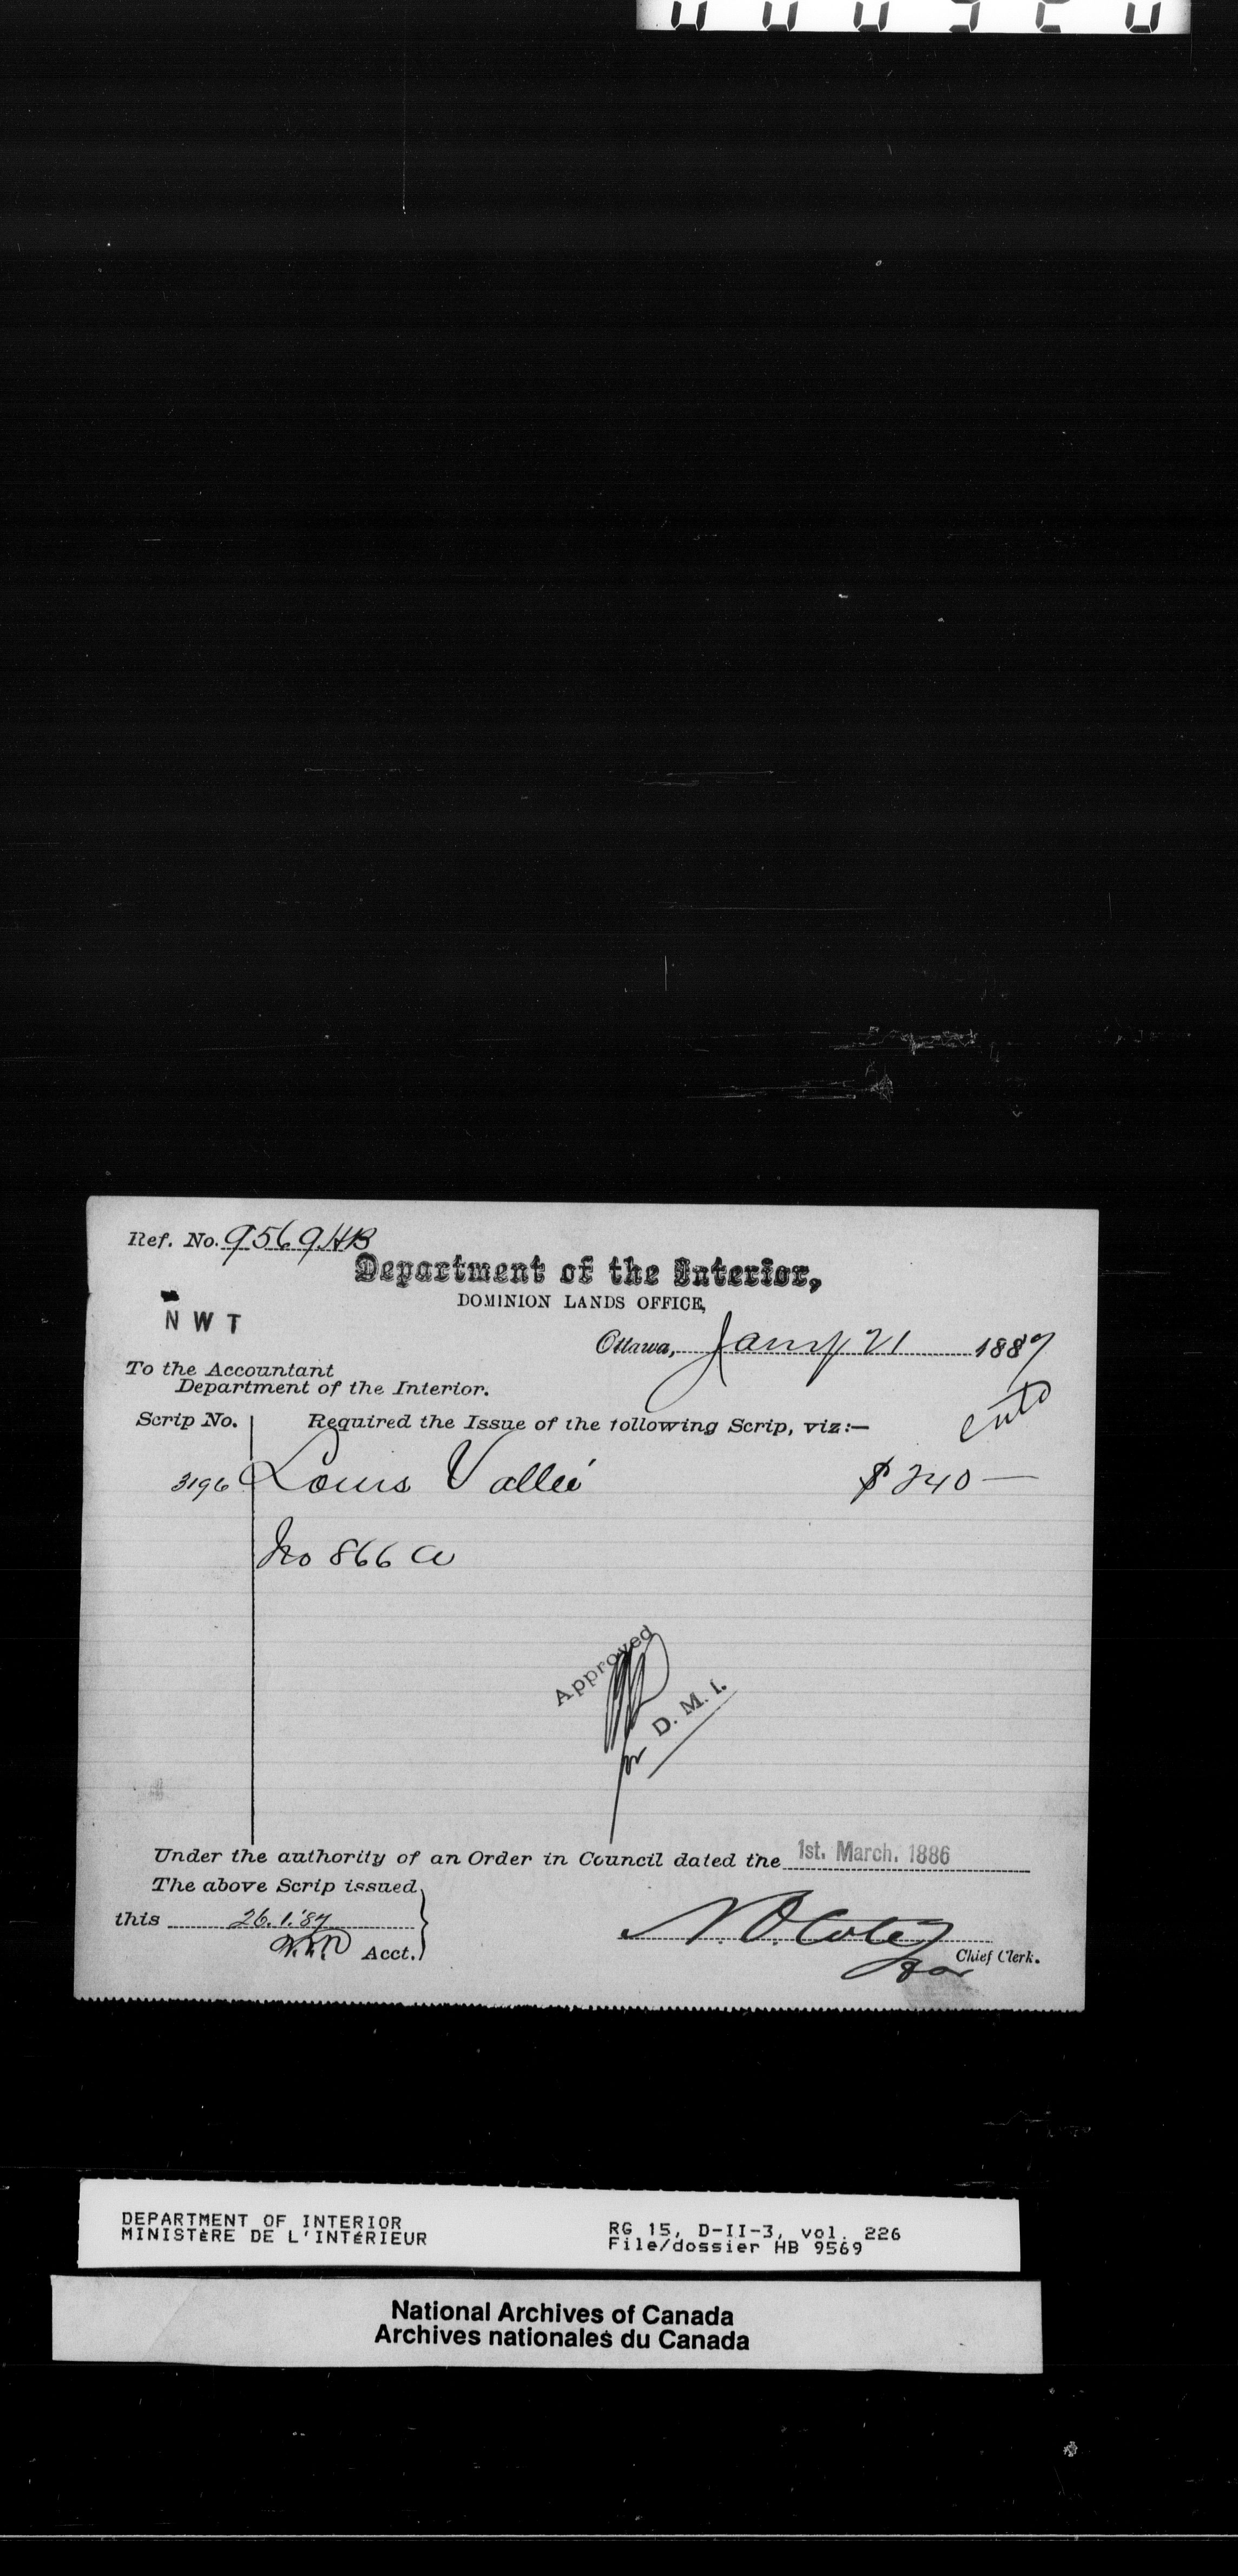 Ref. No. 9569 HB
Department of the Interior,
DOMINION LANDS OFFICE,
N W T
Ottawa, Jany 21 1887
To the Accountant
Department of the Interior.
Scrip No. Required the Issue of the following Scrip, viz:—
3196 Louis Vallée $240 —
No 866 a
Approved
for D. M. I.
Under the authority of an Order in Council dated the 1st. March. 1886
The above Scrip issued
this 26.1.'87
Acct.
N. O. Coté
for Chief Clerk.
DEPARTMENT OF INTERIOR
MINISTÈRE DE L'INTÉRIEUR
RG 15, D-II-3, vol. 226
File/dossier HB 9569
National Archives of Canada
Archives nationales du Canada